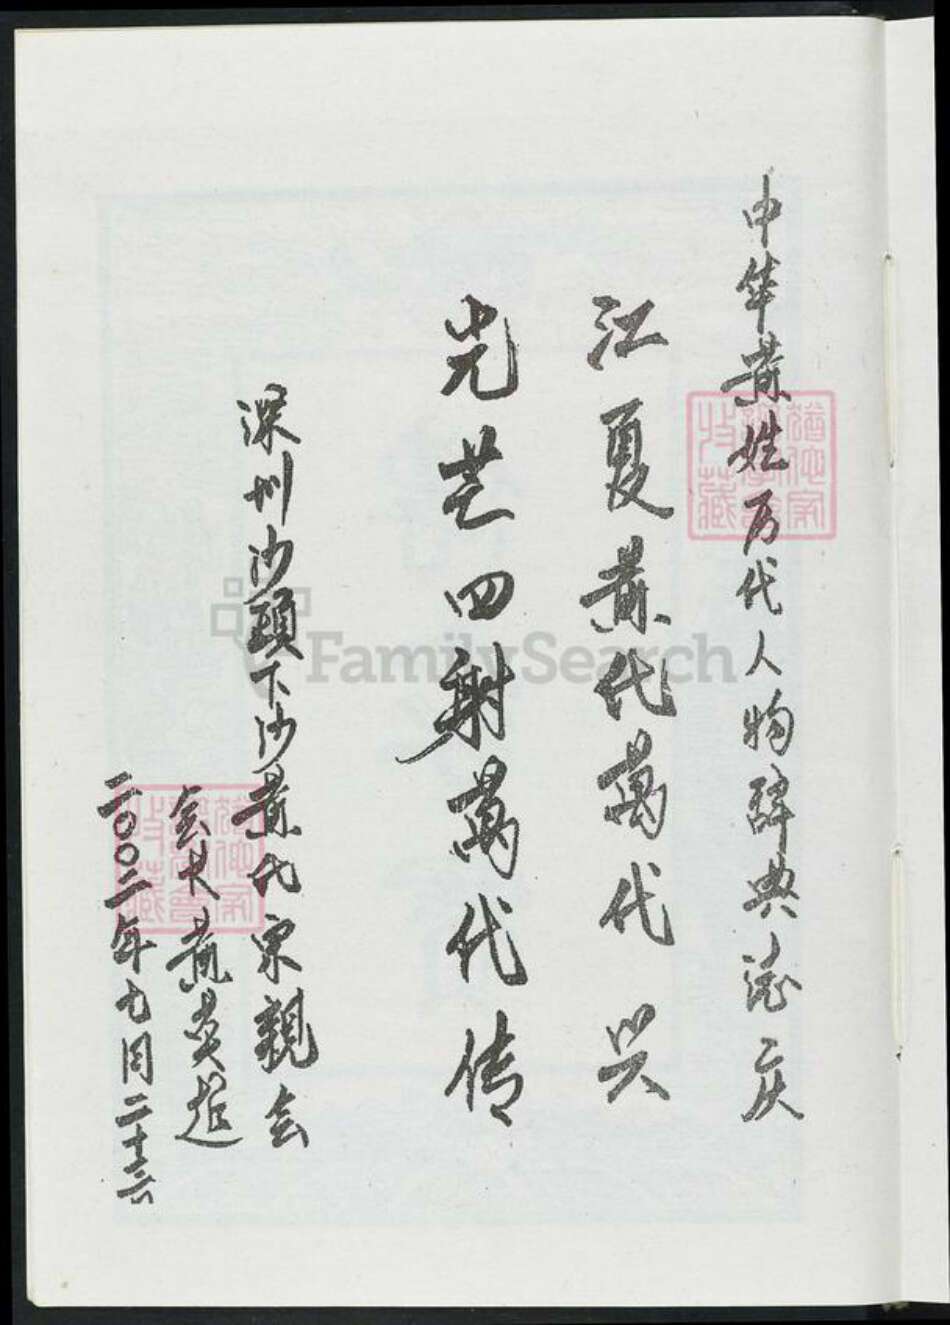 中华黄姓历代人物辞典志庆
江夏黄代万代兴
光芒四射萬代传
深圳沙頭下沙黄代宗親会
会长黄英超
二〇〇二年七月二十六
FamilySearch
收藏
收藏